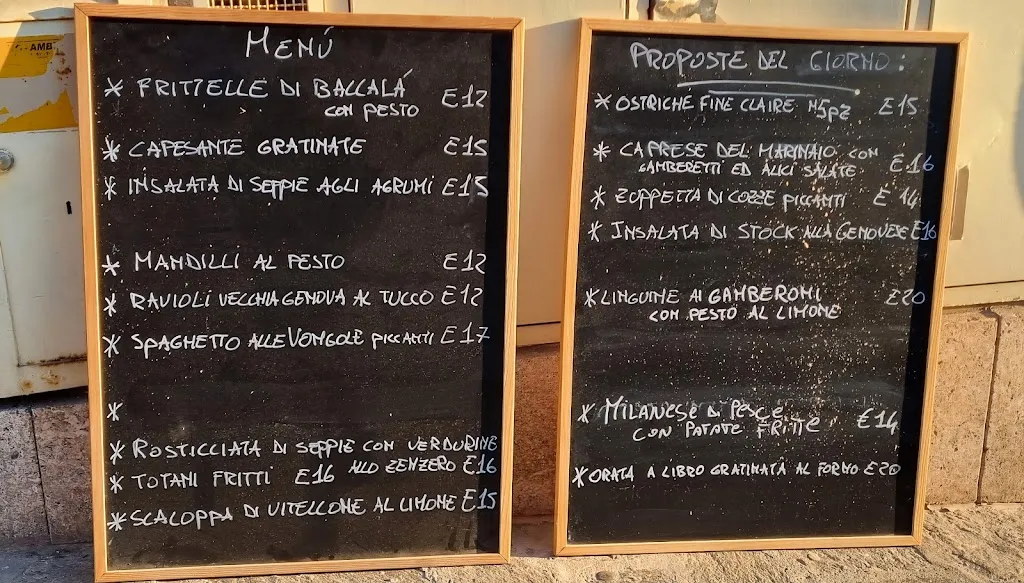 AMB
MENÚ
* FRITTELLE DI BACCALÁ
CON PESTO €12
* CAPESANTE GRATINATE €15
* INSALATA DI SEPPIE AGLI AGRUMI €15
* MANDILLI AL PESTO €12
* RAVIOLI VECCHIA GENOVA AL TUCCO €12
* SPAGHETTO ALLE VONGOLE PICCANTI €17
*
* ROSTICCIATA DI SEPPIE CON VERDURINE
ALLO ZENZERO €16
* TOTANI FRITTI €16
* SCALOPPA DI VITELLONE AL LIMONE €15
PROPOSTE DEL GIORNO:
* OSTRICHE FINE CLAIRE N5PZ €15
* CAPRESE DEL MARINAIO CON
GAMBERETTI ED ALICI SALATE €16
* ZUPPETTA DI COZZE PICCANTI €14
* INSALATA DI STOCK ALLA GENOVESE €16
* LINGUINE AI GAMBERONI €20
CON PESTO AL LIMONE
* MILANESE DI PESCE
CON PATATE FRITTE €14
* ORATA A LIBRO GRATINATA AL FORNO €20